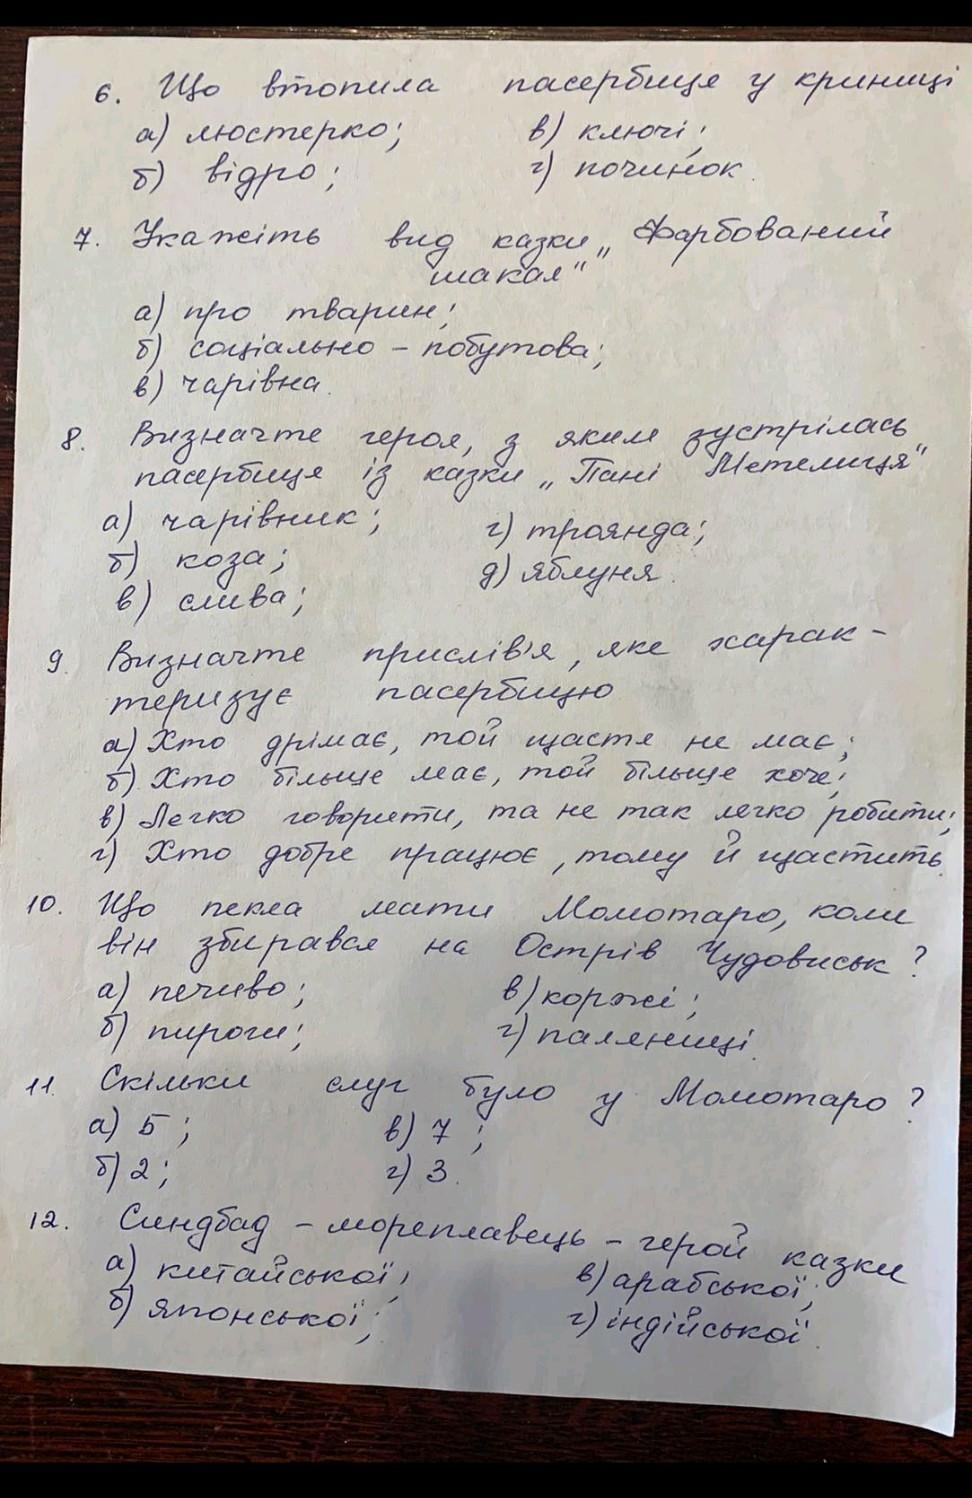 6. Що втопила пасербиця у криниці
а) люстерко; в) ключі;
б) відро; г) починок.
7. Укажіть вид казки „Фарбований
шакал"
а) про тварин;
б) соціально - побутова;
в) чарівна.
8. Визначте героя, з яким зустрілась
пасербиця із казки „Пані Метелиця"
а) чарівник; г) троянда;
б) коза; д) яблуня.
в) слива;
9 Визначте прислів'я, яке харак-
теризує пасербицю
а) Хто дрімає, той щастя не має;
б) Хто більше має, той більше хоче;
в) Легко говорити, та не так легко робити;
г) Хто добре працює, тому й щастить.
10. Що пекла мати Момотаро, коли
він збирався на Острів Чудовиськ?
а) печиво; в) коржі;
б) пироги; г) паляниці.
11. Скільки слуг було у Момотаро?
а) 5; в) 7;
б) 2; г) 3.
12. Синдбад - мореплавець - герой казки
а) китайської; в) арабської;
б) японської; г) індійської.